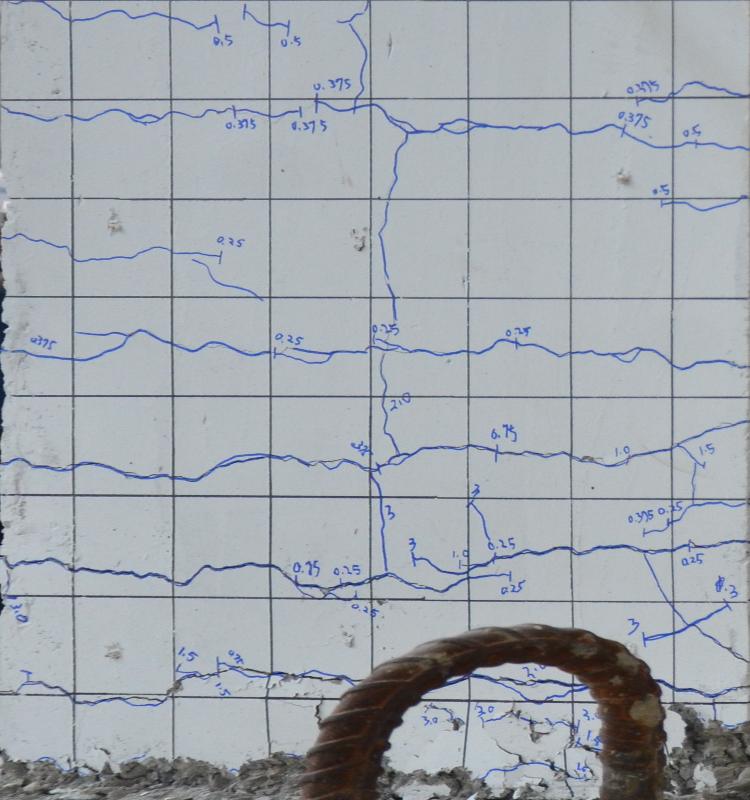 0.5
0.5
0.375
0.375
0.375
0.375
0.375
0.5
0.5
0.25
0.375
0.25
0.25
0.25
2.0
0.75
1.0
1.5
3
3
0.375
0.25
3
1.0
0.25
0.75
0.25
0.25
0.25
0.25
3.0
3
3
1.5
1.5
2.0
3.0
3.0